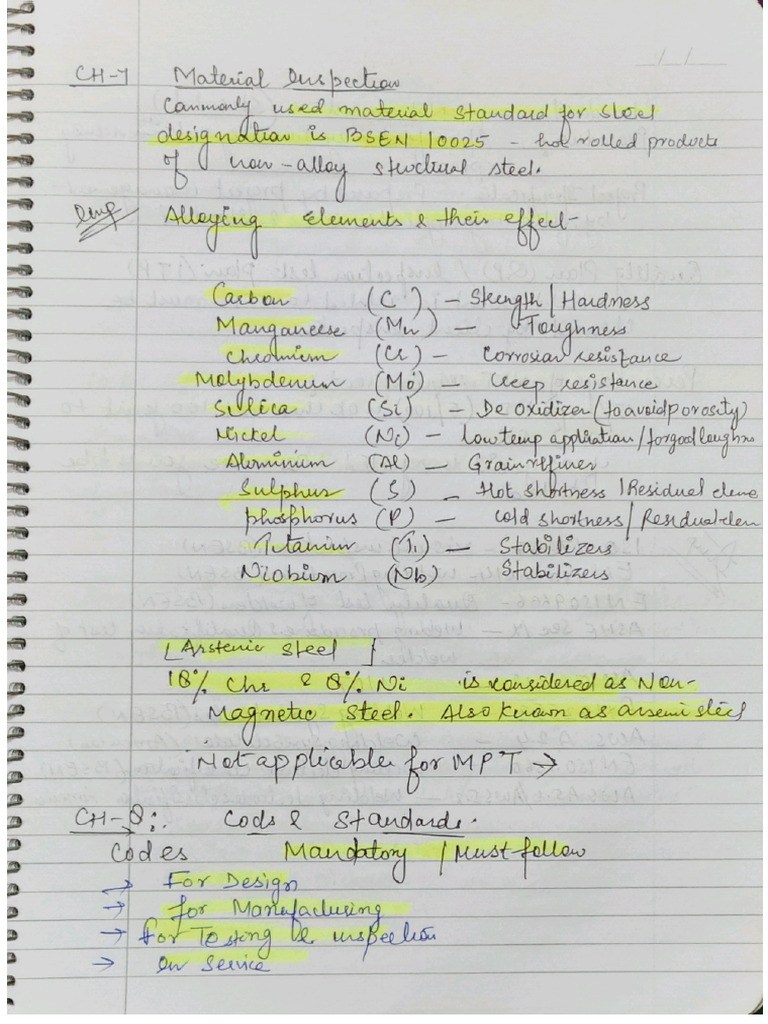 CH-7 Material Inspection
Commonly used material standard for steel
designation is BSEN 10025 - hot rolled products
of non-alloy structural steel.
Imp Alloying Elements & their effect-
Carbon (C) - Strength / Hardness
Manganeese (Mn) - Toughness
Chromium (Cr) - Corrosion resistance
Molybdenum (Mo) - Creep resistance
Sillica (Si) - De Oxidizer (to avoid porosity)
Nickel (Ni) - low temp application / for good toughn
Aluminium (Al) - Grain refiner
Sulphur (S) - Hot shortness / Residual eleme
phosphorus (P) - cold shortness / Residual elem
Titanium (Ti) - Stabilizers
Niobium (Nb) - Stabilizers
[Arstenic steel]
18% Chr & 8% Ni is considered as Non-
Magnetic Steel. Also known as arseni steel
Not applicable for MPT →
CH-8:. Cods & Standards.
Codes Mandatory / Must follow
→ For Design
→ for Manufacturing
→ for Testing & inspection
→ In Service